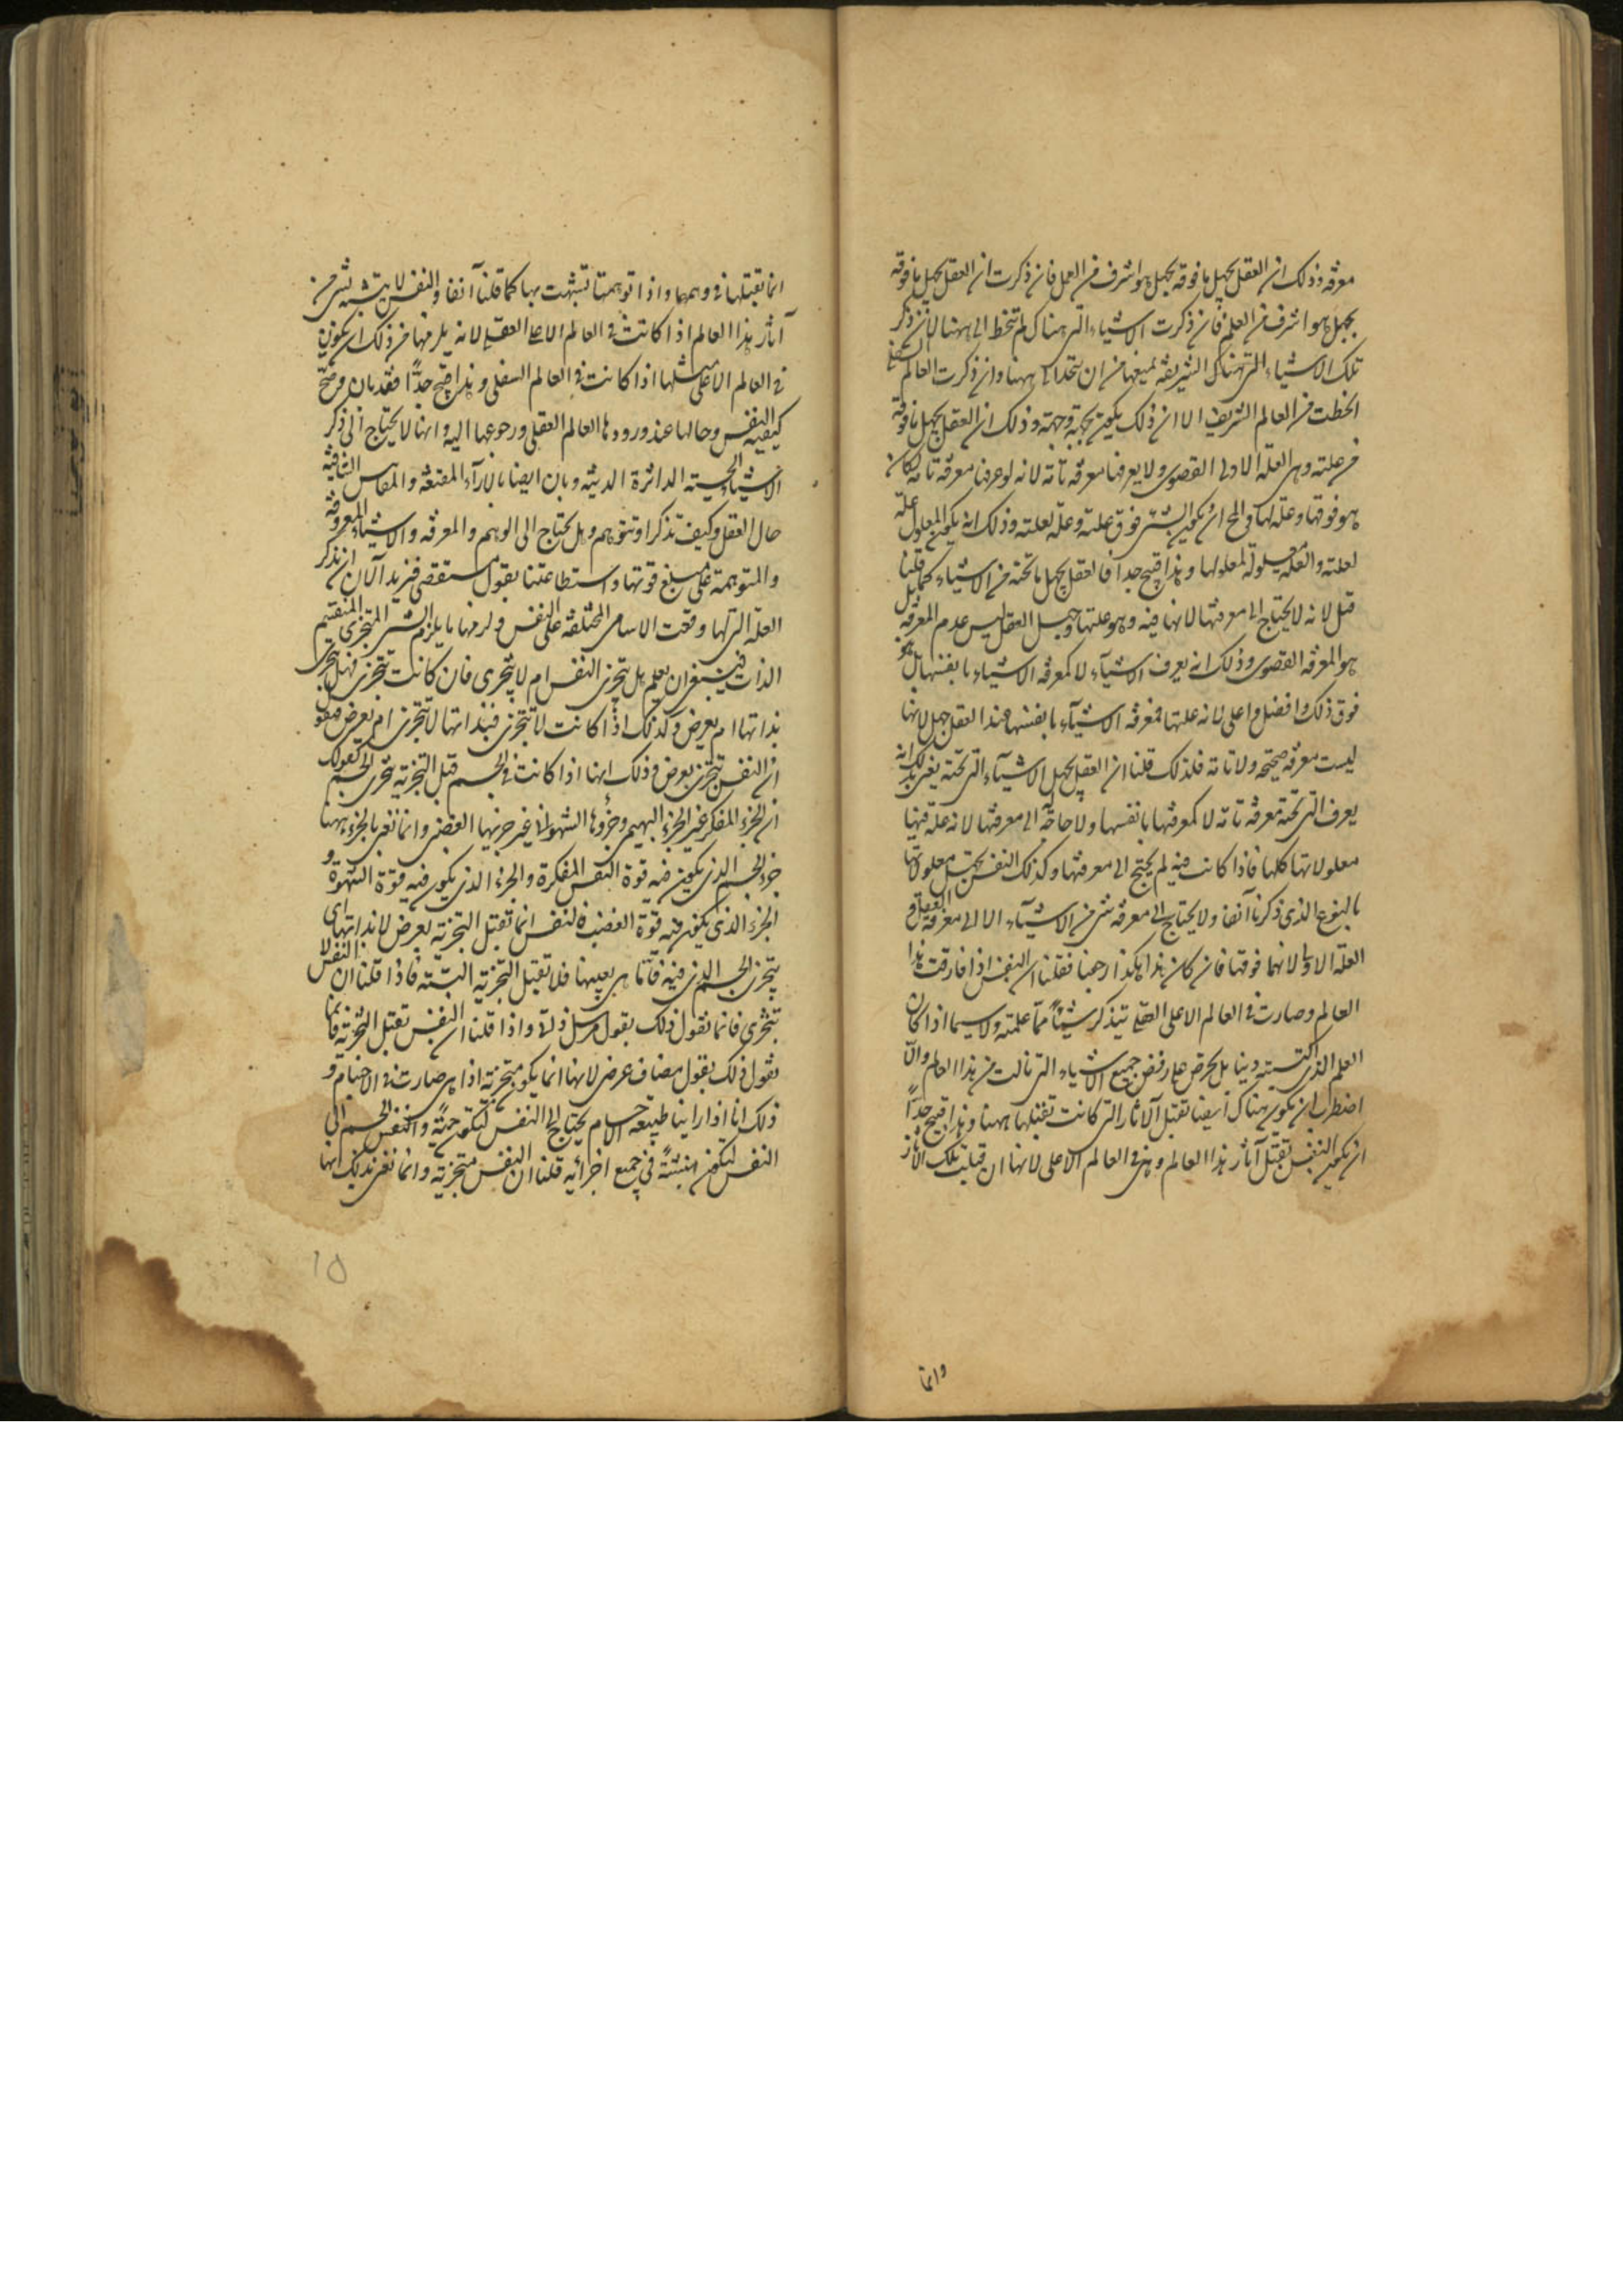 معرفة وذلك ان العقل يجهل ما فوقه بجهل هو اشرف من العلم فان ذكرت ان العقل يجهل ما فوقه
بجهل هو اشرف من العلم فان ذكرت الاشياء التى هناك لم تنحط الى ههنا لان ذكر
تلك الاشياء التى هناك الشريفة يمنعها من ان تنحدر الى ههنا وان ذكرت العالم السفلى
انحطت من العالم الشريف الا ان ذلك يكون بجهة وجهة وذلك ان العقل يجهل ما فوقه
من علته وهى العلة الاولى القصوى ولا يعرفها معرفة تامة لانه لو عرفها معرفة تامة لكان
هو فوقها وعلة لها ومن المح ان يكون الشىء فوق علته وعلة لعلته وذلك انه يكون المعلول علة
لعلته والعلة معلولة لمعلولها وهذا قبيح جدا فالعقل يجهل ما تحته من الاشياء كما قلنا
قبل لانه لا يحتاج الى معرفتها لانها فيه وهو علتها وجهل العقل ليس عدم المعرفة بل
هو المعرفة القصوى وذلك انه يعرف الاشياء لا كمعرفة الاشياء بانفسها بل هو
فوق ذلك وافضل واعلى لانه علتها فمعرفة الاشياء بانفسها عند العقل جهل لانها
ليست معرفة صحيحة ولا تامة فلذلك قلنا ان العقل يجهل الاشياء التى تحته يعنى بذلك انه
يعرف التى تحته معرفة تامة لا كمعرفتها بانفسها ولا حاجة له الى معرفتها لانه علة فيها
معلولاتها كلها فاذا كانت فيه لم يحتج الى معرفتها وكذلك النفس تجهل معلولاتها
بالنوع الذى ذكرنا آنفا ولا يحتاج الى معرفة شىء من الاشياء الا الى معرفة العقل و
العلة الاولى لانهما فوقها فان كان هذا هكذا رجعنا فقلنا ان النفس اذا فارقت هذا
العالم وصارت فى العالم الاعلى العقلى تتذكر شيئا مما علمته ولا سيما اذا كان
العلم الذى اكتسبته دنيا بل تحرص على رفض جميع الاشياء التى نالت من هذا العالم والا
اضطرت ان تكون هناك ايضا تقبل الآثار التى كانت تقبلها ههنا وهذا قبيح جدا
ان تكون النفس تقبل آثار هذا العالم وهى فى العالم الاعلى لانها ان قبلت تلك الآثار
وانما
انما تقبلها فى وهمها واذا توهمتها تشبهت بها كما قلنا آنفا والنفس لا يتشبه بشىء من
آثار هذا العالم اذا كانت فى العالم الاعلى العقلى لانه يلزمها من ذلك ان تكون
فى العالم الاعلى مثلها اذا كانت فى العالم السفلى وهذا قبيح جدا فقد بان وصح
كيفية النفس وحالها عند ورودها العالم العقلى ورجوعها اليه وانها لا يحتاج الى ذكر
الاشياء الحسية الداثرة الدنية وبان ايضا بالآراء المقنعة والمقاييس الشافية
حال العقل وكيف تذكر او تتوهم وهل يحتاج الى الوهم والمعرفة والاشياء المعروفة
والمتوهمة على مبلغ قوتها واستطاعتنا بقول مستقصى فنريد الآن ان نذكر
العلة التى لها وقعت الاسامى المختلفة على النفس ولزمها ما يلزم الشىء المتجزى المنقسم
الذات فينبغى ان يعلم هل تتجزى النفس ام لا يتجزى فان كانت تتجزى فهل تتجزى
بذاتها ام بعرض وكذلك اذا كانت لا تتجزى فبذاتها لا تتجزى ام بعرض فنقول
ان النفس تتجزى بعرض وذلك انها اذا كانت فى الجسم قبل التجزية بتجزى الجسم كقولك
ان الجزء المفكر غير الجزء البهيمى وجزؤها الشهوانى غير جزئها الغضبى وانما نعنى بالجزء ههنا
جزء الجسم الذى يكون فيه قوة النفس المفكرة والجزء الذى يكون فيه قوة الشهوة و
الجزء الذى يكون فيه قوة الغضب فالنفس انما تقبل التجزية بعرض لا بذاتها اى
بتجزى الجسم الذى فيه فاما هى بعينها فلا تقبل التجزية البتة فاذا قلنا ان النفس لا
تتجزى فانما نقول ذلك بقول مرسل ذاتى واذا قلنا ان النفس تقبل التجزية فانما
نقول ذلك بقول مضاف عرضى لانها انما يكون متجزية اذا هى صارت فى الاجسام و
ذلك انا اذا راينا طبيعة الاجسام يحتاج الى النفس لتكون حية والنفس الجسم الى
النفس لتكون منبثة فى جميع اجزائه قلنا ان النفس متجزية وانما نعنى بذلك انها
١٥